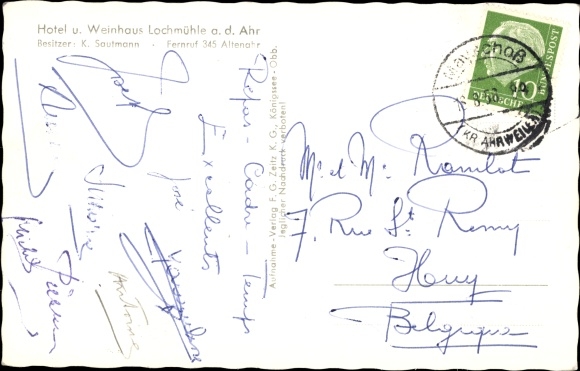 Hotel u. Weinhaus Lochmühle a. d. Ahr
Besitzer: K. Sautmann · Fernruf 345 Altenahr
Repas - Cadre - Temps
Excellents
José
Antoine
Aufnahme-Verlag F. G. Zeitz K. G., Königssee-Obb.
Jeglicher Nachdruck verboten!
10
DEUTSCHE
BUNDESPOST
(KR. AHRWEILER)
M. et Me Rambot
7. Rue St. Remy
Huy
Belgique